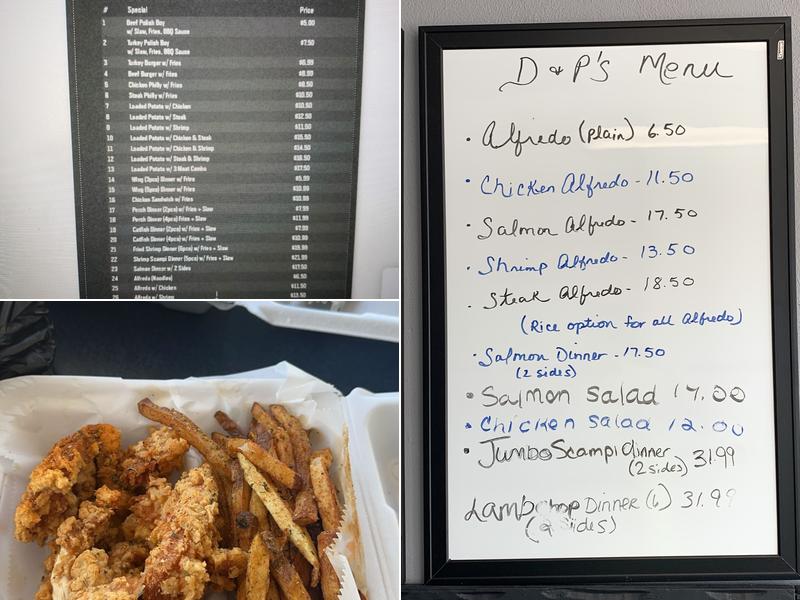 # Special Price
1 Beef Polish Boy $5.00
w/ Slaw, Fries, BBQ Sauce
2 Turkey Polish Boy $7.50
w/ Slaw, Fries, BBQ Sauce
3 Turkey Burger w/ Fries
4 Beef Burger w/ Fries
5 Chicken Philly w/ Fries
6 Steak Philly w/ Fries
7 Loaded Potato w/ Chicken
8 Loaded Potato w/ Steak $12.50
9 Loaded Potato w/ Shrimp
10 Loaded Potato w/ Chicken & Steak
11 Loaded Potato w/ Chicken & Shrimp $14.50
12 Loaded Potato w/ Steak & Shrimp
13 Loaded Potato w/ 3 Meat Combo $17.50
14 Wing (3pcs) Dinner w/ Fries
15 Wing Dinner w/ Fries
16 Chicken Sandwich w/ Fries
17 Perch Dinner (2pcs) w/ Fries + Slaw $7.99
18 Perch Dinner (4pcs) Fries + Slaw $11.99
19 Catfish Dinner (2pcs) w/ Fries + Slaw $7.99
20 Catfish Dinner (4pcs) w/ Fries + Slaw
21 Fried Shrimp Dinner (6pcs) w/ Fries + Slaw
22 Shrimp Scampi Dinner (5pcs) w/ Fries + Slaw $21.99
23 Salmon Dinner w/ 2 Sides $17.50
24 Alfredo (Noodles) $6.50
25 Alfredo w/ Chicken $11.50
26 Alfredo w/ Shrimp $13.50
D & P's Menu
• Alfredo (plain) 6.50
• Chicken Alfredo - 11.50
• Salmon Alfredo - 17.50
• Shrimp Alfredo - 13.50
• Steak Alfredo - 18.50
(Rice option for all Alfredo)
• Salmon Dinner - 17.50
(2 sides)
• Salmon salad 17.00
• Chicken salad 12.00
• Jumbo Scampi dinner
(2 sides) 31.99
Lamb chop Dinner (6) 31.99
(2 sides)